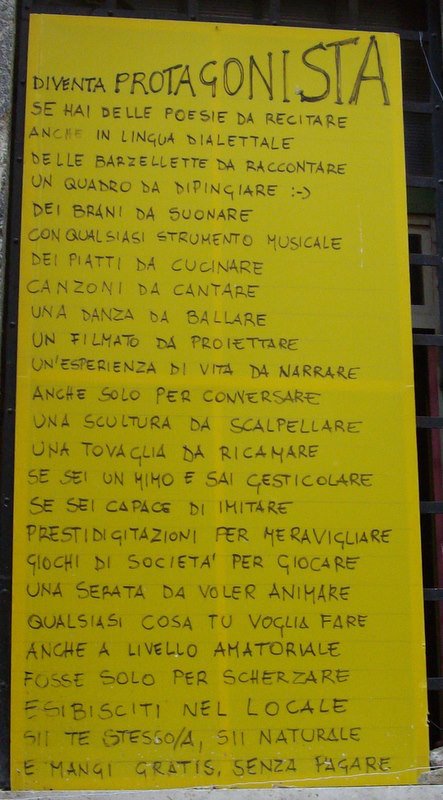 DIVENTA PROTAGONISTA
SE HAI DELLE POESIE DA RECITARE
ANCHE IN LINGUA DIALETTALE
DELLE BARZELLETTE DA RACCONTARE
UN QUADRO DA DIPINGIARE :-)
DEI BRANI DA SUONARE
CON QUALSIASI STRUMENTO MUSICALE
DEI PIATTI DA CUCINARE
CANZONI DA CANTARE
UNA DANZA DA BALLARE
UN FILMATO DA PROIETTARE
UN'ESPERIENZA DI VITA DA NARRARE
ANCHE SOLO PER CONVERSARE
UNA SCULTURA DA SCALPELLARE
UNA TOVAGLIA DA RICAMARE
SE SEI UN MIMO E SAI GESTICOLARE
SE SEI CAPACE DI IMITARE
PRESTIDIGITAZIONI PER MERAVIGLIARE
GIOCHI DI SOCIETA' PER GIOCARE
UNA SERATA DA VOLER ANIMARE
QUALSIASI COSA TU VOGLIA FARE
ANCHE A LIVELLO AMATORIALE
FOSSE SOLO PER SCHERZARE
ESIBISCITI NEL LOCALE
SII TE STESSO/A, SII NATURALE
E MANGI GRATIS, SENZA PAGARE